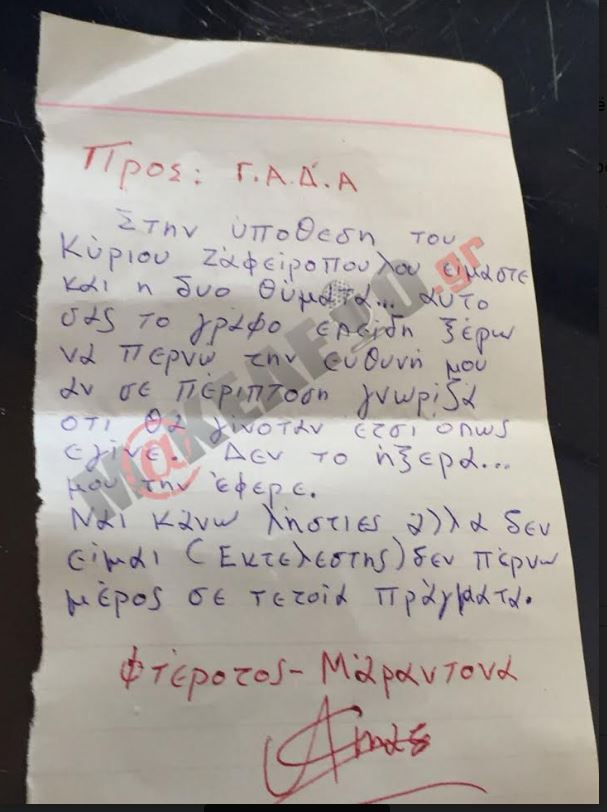 Προς: Γ.Α.Δ.Α
Στην ύποθεση του
Κύριου Ζάφειροπουλου είμαστε
και η δυο θύματα... αυτο
σας το γράφο επείδη ξέρω
να περνω την ευθυνή μου
άν σε πέριπτοση γνωρίζα
οτι θα γίνοταν έτσι οπως
εγίνε. Δεν το ήξερα...
μου την έφερε.
Ναι κάνω ληστιες άλλα δεν
είμαι (Εκτελεστης) δεν πέρνω
μέρος σε τετοία πράγματα.
Φτέροτος - Μάραντονα
M@KELEIO.gr